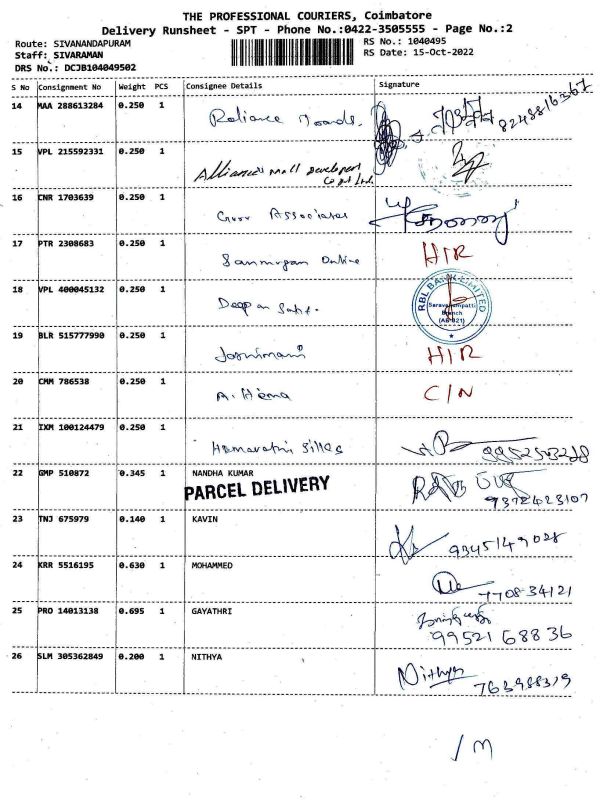 THE PROFESSIONAL COURIERS, Coimbatore
Delivery Runsheet - SPT - Phone No.:0422-3505555 - Page No.:2
Route: SIVANANDAPURAM
RS No.: 1040495
Staff: SIVARAMAN
RS Date: 15-Oct-2022
DRS No.: DCJB104049502
S No Consignment No Weight PCS Consignee Details Signature
14 MAA 288613284 0.250 1 Reliance 8248816367
15 VPL 215592331 0.250 1 Alliance Mall Developers Co Pvt Ltd.
16 CNR 1703639 0.250 1 Guru Associates
17 PTR 2308683 0.250 1 Sanmugan Online HIR
18 VPL 400045132 0.250 1 Deepan
RBL BANK LIMITED
Saravanampatti
Branch
19 BLR 515777990 0.250 1 HIR
20 CMM 786538 0.250 1 A. Hema C/N
21 IXM 100124479 0.250 1 Hemavathi Silks
22 GMP 510872 0.345 1 NANDHA KUMAR
PARCEL DELIVERY
9372423107
23 TNJ 675979 0.140 1 KAVIN 9345149028
24 KRR 5516195 0.630 1 MOHAMMED
25 PRO 14013138 0.695 1 GAYATHRI
9952168836
26 SLM 305362849 0.200 1 NITHYA Nithya